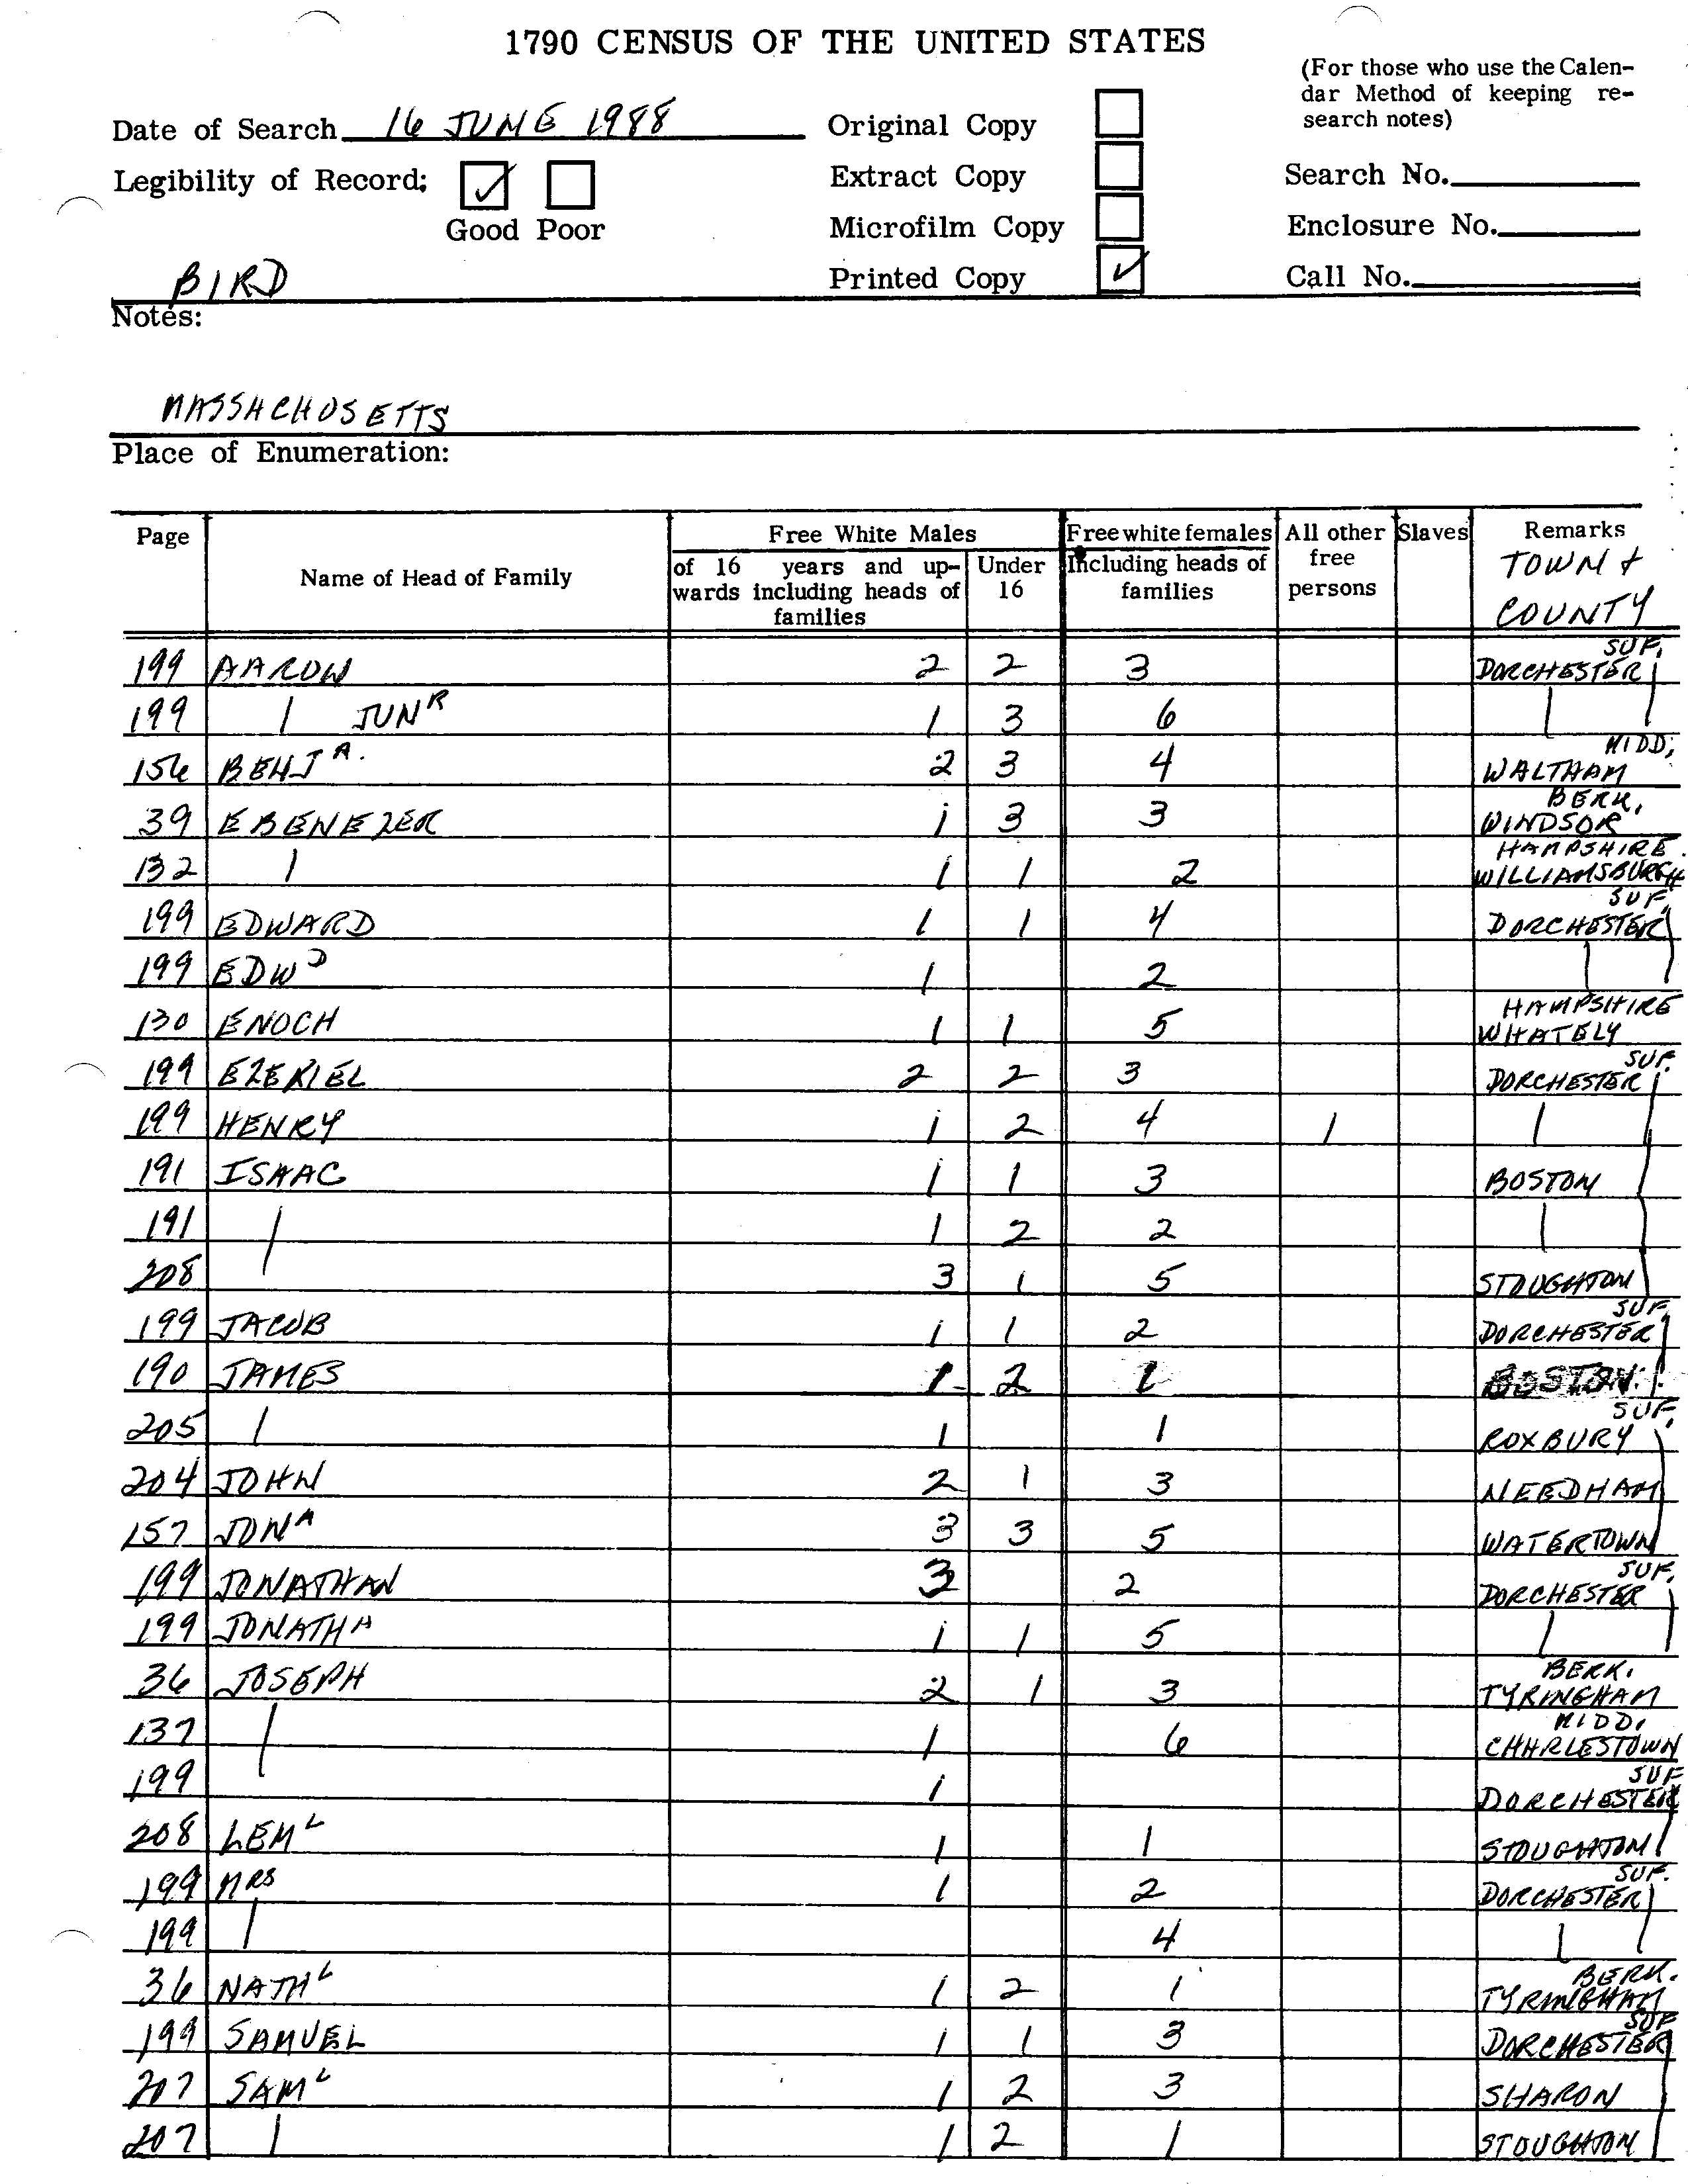 1790 CENSUS OF THE UNITED STATES
(For those who use the Calen-
dar Method of keeping re-
search notes)
Date of Search 16 JUNE 1988
Original Copy
Legibility of Record:
Good Poor
Extract Copy
Search No.
Microfilm Copy
Enclosure No.
BIRD
Printed Copy
Call No.
Notes:
MASSACHUSETTS
Place of Enumeration:
Page
Name of Head of Family
Free White Males
of 16 years and up-
wards including heads of
families
Under
16
Free white females
Including heads of
families
All other
free
persons
Slaves
Remarks
TOWN +
COUNTY
199 AARON 2 2 3 DORCHESTER SUF.
199 | JUNR 1 3 6 |
156 BENJA. 2 3 4 WALTHAM MIDD.
39 EBENEZER 1 3 3 WINDSOR BERK.
132 | 1 1 2 WILLIAMSBURGH HAMPSHIRE
199 EDWARD 1 1 4 DORCHESTER SUF.
199 EDWD 1 2 |
130 ENOCH 1 1 5 WHATELY HAMPSHIRE
199 EZEKIEL 2 2 3 DORCHESTER SUF.
199 HENRY 1 2 4 1 |
191 ISAAC 1 1 3 BOSTON
191 | 1 2 2 |
208 3 1 5 STOUGHTON
199 JACOB 1 1 2 DORCHESTER SUF.
190 JAMES 1 2 1 BOSTON
205 | 1 1 ROXBURY SUF.
204 JOHN 2 1 3 NEEDHAM
157 JONA 3 3 5 WATERTOWN
199 JONATHAN 3 2 DORCHESTER SUF.
199 JONATHA 1 1 5 |
36 JOSEPH 2 1 3 TYRINGHAM BERK.
137 | 1 6 CHARLESTOWN MIDD.
199 1 DORCHESTER SUF
208 LEML 1 1 STOUGHTON
199 MRS 1 2 DORCHESTER SUF.
199 | 4 |
36 NATHL 1 2 1 TYRINGHAM BERK.
199 SAMUEL 1 1 3 DORCHESTER SUF
207 SAML 1 2 3 SHARON
207 | 1 2 1 STOUGHTON